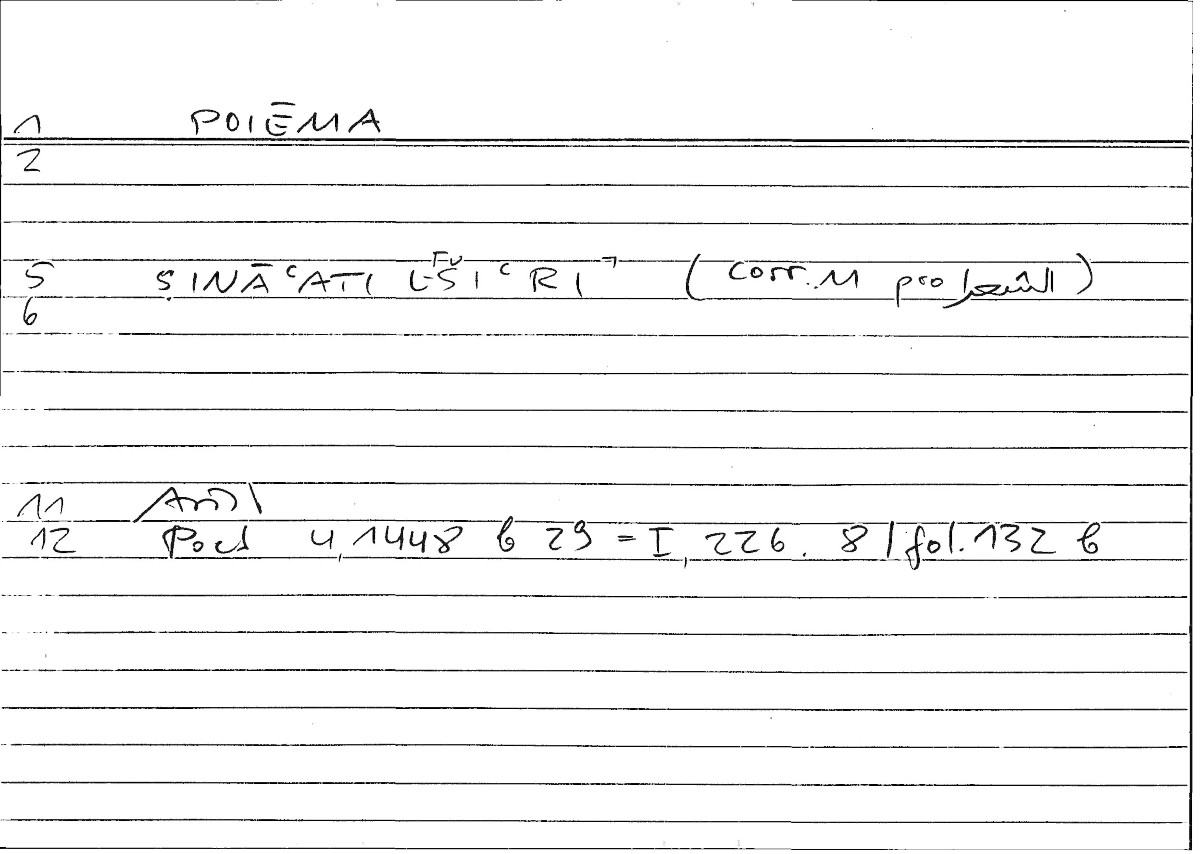 1 POIĒMA
2
5 ṢINĀʿATI L-ŠIʿRI (corr. M pro الشعرا)
6
11
12 Poet 4, 1448 b 29 = I, 226. 8 / fol. 132 b